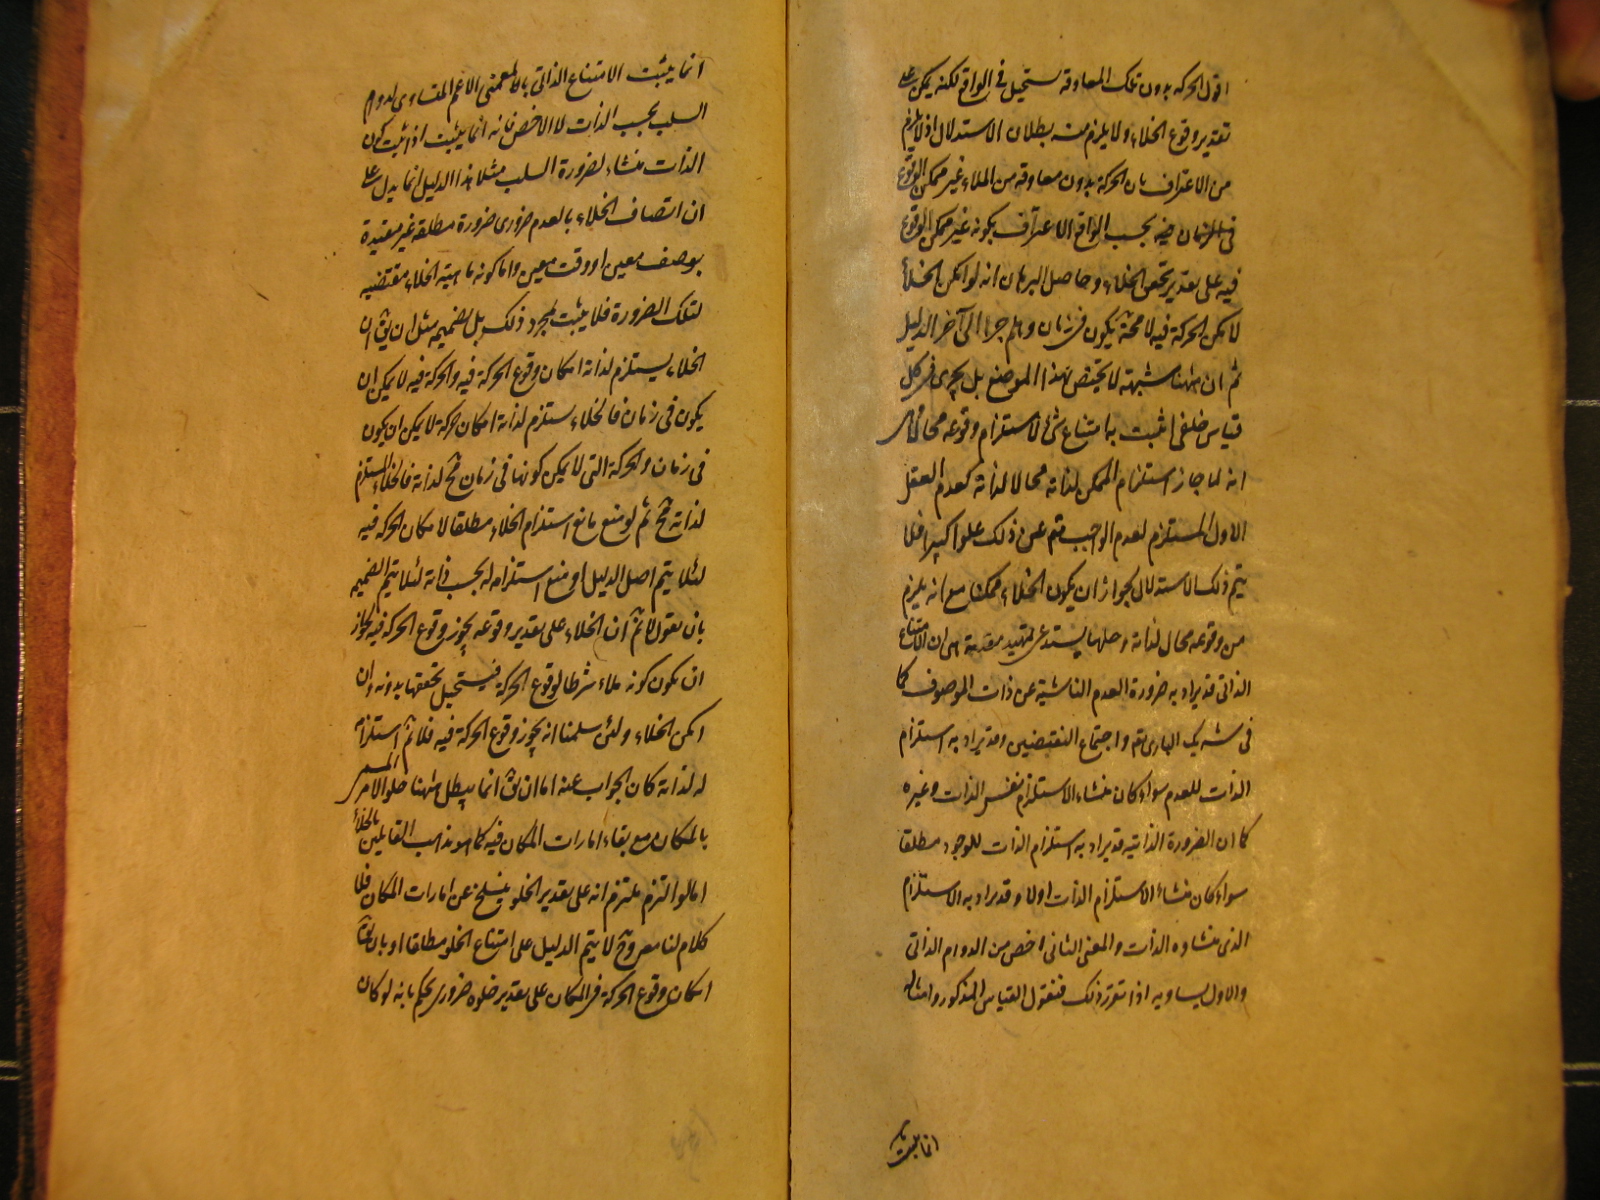 اقول الحركة بدون تلك المعاوقة مستحيل فى الواقع لكنه يمكن على
تقدير وقوع الخلاء ولا يلزم منه بطلان الاستدلال اذ لا يلزم
من الاعتراف بان الحركة بدون معاوقة من الملاء غير ممكن الوقوع
فى الزمان فيه بحسب الواقع الاعتراف بكونه غير ممكن الوقوع
فيه على تقدير تحقق الخلاء وحاصل البرهان انه لو امكن الخلأ
لامكن الحركة فيه لا محة يكون فى زمان وهلم جرا الى آخر الدليل
ثم ان ههنا شبهة لا تختص بهذا الموضع بل يجرى فى كل
قياس خلفى اثبت به امتناع شئ لاستلزام وقوعه محالا
انه لما جاز استلزام الممكن لذاته محالا لذاته كعدم العقل
الاول المستلزم لعدم الواجب تع عن ذلك علوا كبيرا فلا
يتم ذلك الاستدلال لجواز ان يكون الخلاء ممكنا مع انه يلزم
من وقوعه محال لذاته وحلها يستدعى تمهيد مقدمة هى ان الامتناع
الذاتى قد يراد به ضرورة العدم الناشية عن ذات الموصوف كما
فى شريك البارى تع واجتماع النقيضين وقد يراد به استلزام
الذات للعدم سواء كان منشاء الاستلزام نفس الذات وغيره
كما ان الضرورة الذاتية قد يراد به استلزام الذات للوجود مطلقا
سواء كان منشاء الاستلزام الذات اولا وقد يراد به الاستلزام
الذى منشاوه الذات والمعنى الثانى اخص من الدوام الذاتى
والاول يساويه اذا تقرر ذلك فنقول القياس المذكور وامثاله
انما يثبت
انما يثبت الامتناع الذاتى بالمعنى الاعم المتساوى لدوام
السلب بحسب الذات لا الاخص فانه انما يثبت اذا ثبت كون
الذات منشاء لضرورة السلب مثلا هذا الدليل انما يدل على
ان اتصاف الخلاء بالعدم ضرورى ضرورة مطلقه غير مقيدة
بوصف معين او وقت معين واما كونه ماهية الخلاء مقتضيه
لتلك الضرورة فلا يثبت بمجرد ذلك بل بضميمه مثل ان يق ان
الخلاء يستلزم لذاته امكان وقوع الحركة فيه والحركة فيه لا يمكن ان
يكون فى زمان فالخلاء يستلزم لذاته امكان حركة لا يمكن ان يكون
فى زمان والحركة التى لا يمكن كونها فى زمان مح لذاته فالخلاء يستلزم
لذاته مح ثم لو منع مانع استلزام الخلاء مطلقا لامكان الحركه فيه
لئلا يتم اصل الدليل او منع استلزامه له بحسب ذاته لئلا يتم الضميمه
بان نقول لا نم ان الخلاء على تقدير وقوعه يجوز وقوع الحركة فيه لجواز
ان يكون كونه ملاء شرطا لوقوع الحركة فيستحيل تحققها بدونه وان
امكن الخلاء ولئن سلمنا انه يجوز وقوع الحركة فيه فلا نم استلزامه
له لذاته كان الجواب عنه اما ان يق انما يبطل ههنا خلو الامر المسمى
بالمكان مع بقاء امارات المكان فيه كما هو مذهب القائلين بالخلأ
اما لو التزم ملتزم انه على تقدير الخلو ينسلخ عن امارات المكان فلا
كلام لنا معه وح لا يتم الدليل على امتناع الخلو مطلقا او بان يق
امكان وقوع الحركة فى المكان على تقدير خلوه ضرورى يحكم بانه لو كان